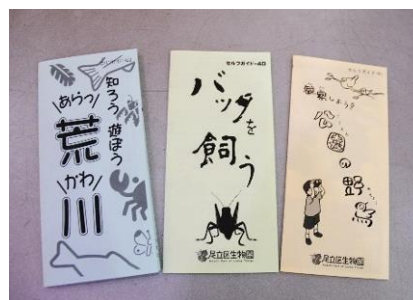 知ろう 遊ぼう
\あらっ/
荒
\かわ/
川
セルフガイドー40
バッタを
飼う
足立区生物園
観察しよう
公園の野鳥
足立区生物園